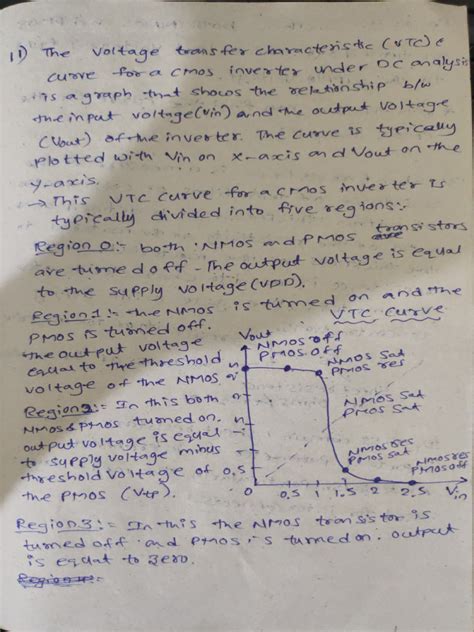 11) The voltage transfer characteristic (VTC)
curve for a CMOS inverter under DC analysis
is a graph that shows the relationship b/w
the input voltage (Vin) and the output voltage
(Vout) of the inverter. The curve is typically
plotted with Vin on x-axis and Vout on the
y-axis.
→ This VTC curve for a CMOS inverter is
typically divided into five regions:-
Region 0:- both NMOS and PMOS transistors
are turned off - The output voltage is equal
to the supply voltage (VDD).
Region 1:- the NMOS is turned on and the
PMOS is turned off.
the output voltage
equal to the threshold
voltage of the NMOS
Region 2:- In this both
NMOS & PMOS turned on.
output voltage is equal
to supply voltage minus
threshold voltage of
the PMOS (Vtp).
VTC curve
Vout
NMOS off
PMOS off
NMOS sat
PMOS res
NMOS sat
PMOS sat
NMOS res
PMOS sat
NMOS res
PMOS off
0.5
0 0.5 1 1.5 2 2.5 Vin
Region 3:- In this the NMOS transistor is
turned off and PMOS is turned on. output
is equal to zero.